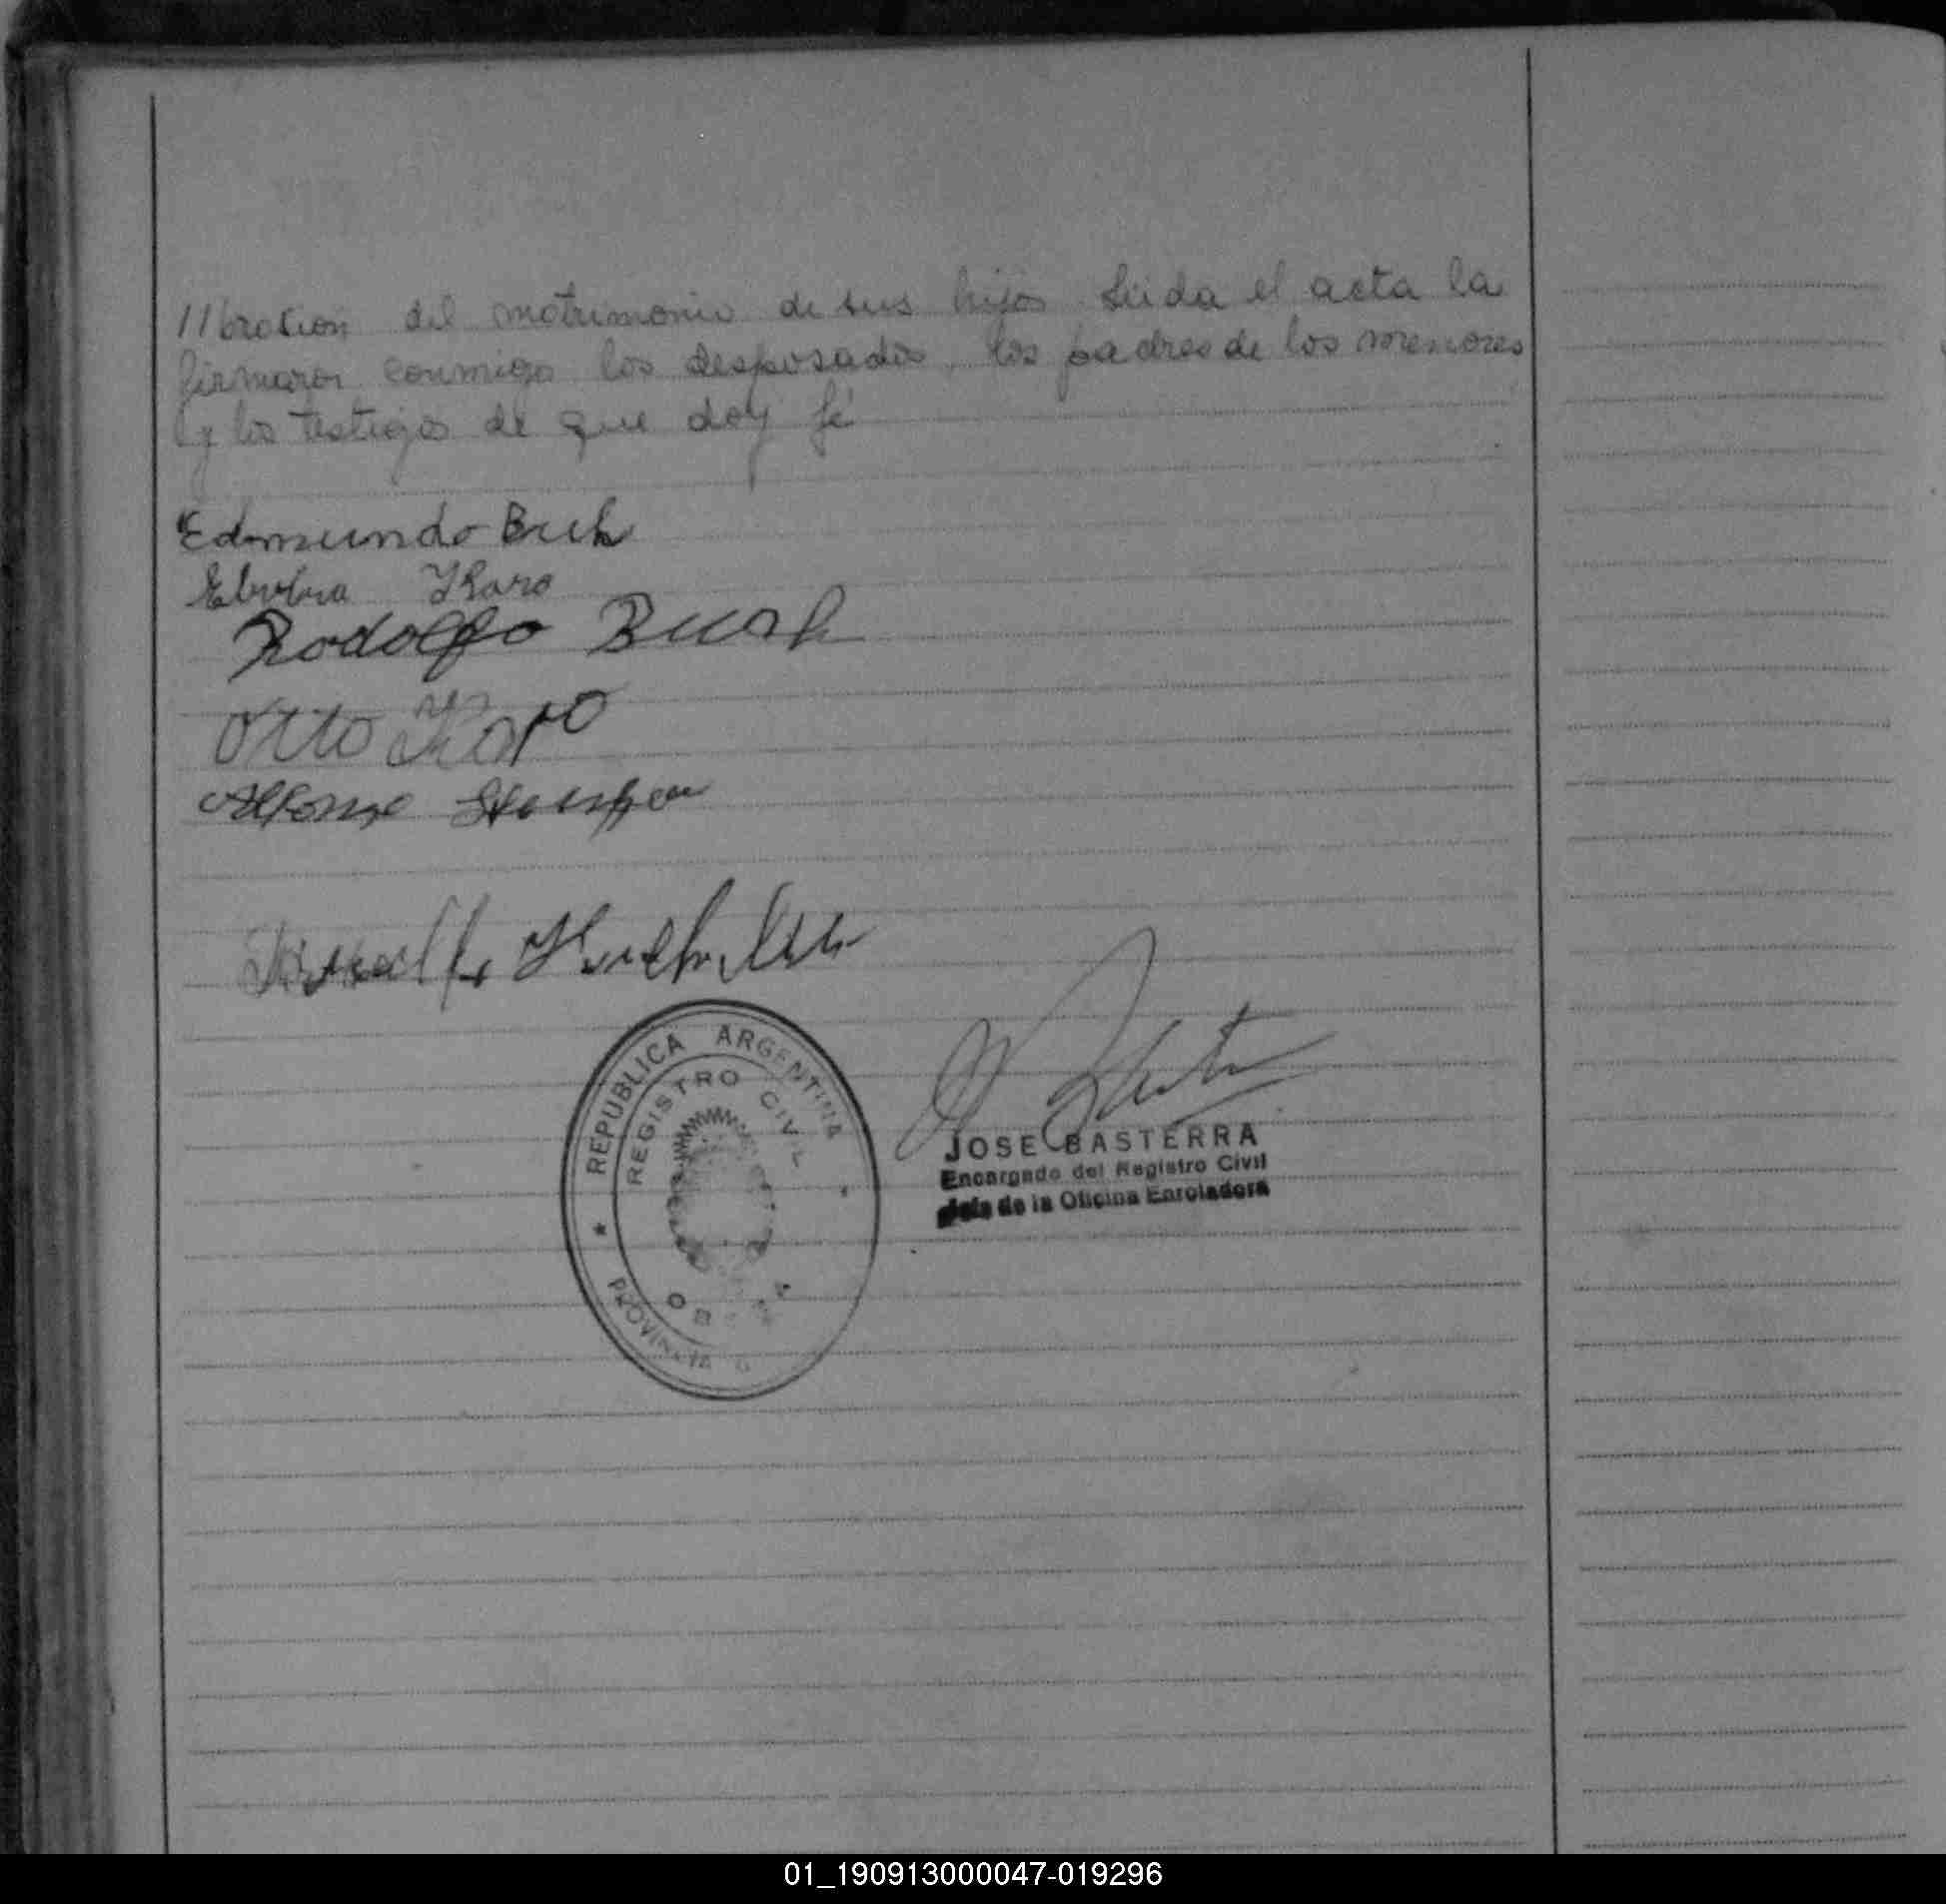 //bración del matrimonio de sus hijos Leida el acta la
firmaron conmigo los desposados, los padres de los menores
y los testigos de que doy fé
Edmundo
Haro
Rodolfo
Otto Haro
Alfonso
REPUBLICA ARGENTINA
REGISTRO CIVIL
PROVINCIA
OBERA
JOSE BASTERRA
Encargado del Registro Civil
Jefe de la Oficina Enroladora
01_190913000047-019296